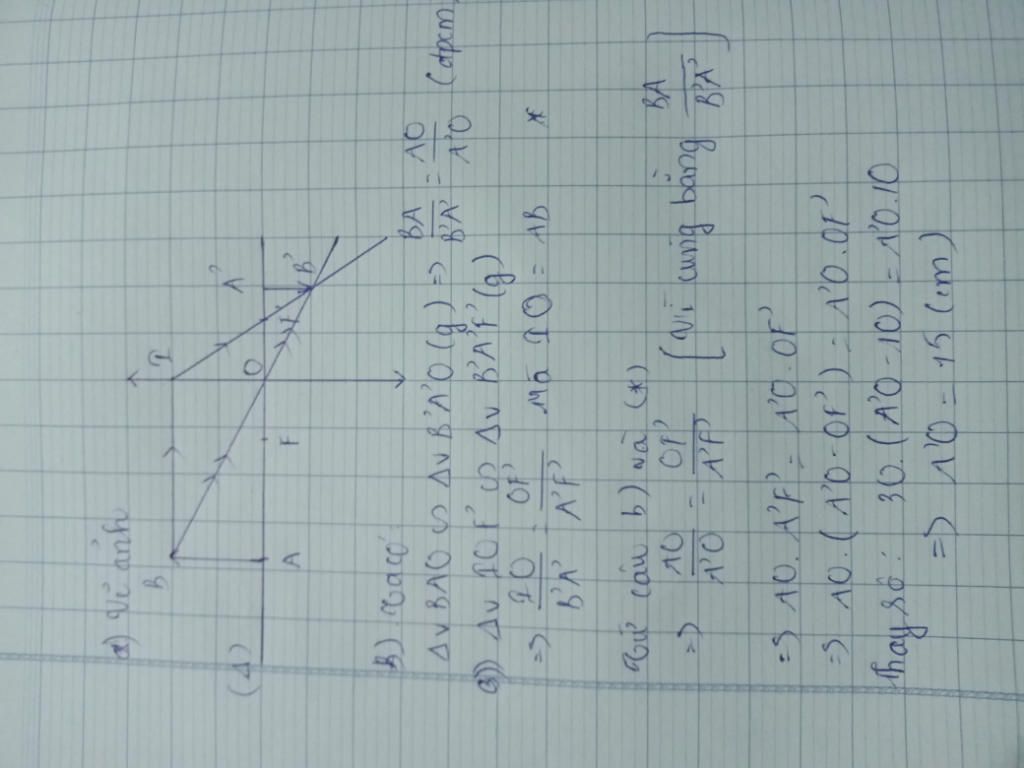 a) Vẽ ảnh
B
I
A'
(Δ)
A
F
O
B'
b) Ta có
Δv BAO ∽ Δv B'A'O (g) => BA/B'A' = AO/A'O (đpcm)
c) Δv IOF' ∽ Δv B'A'F' (g)
=> IO/B'A' = OF'/A'F' Mà IO = AB *
Từ câu b) và (*)
=> AO/A'O = OF'/A'F' [Vì cùng bằng BA/B'A']
=> AO. A'F' = A'O. OF'
=> AO. (A'O - OF') = A'O. OF'
Thay số: 30. (A'O - 10) = A'O. 10
=> A'O = 15 (cm)